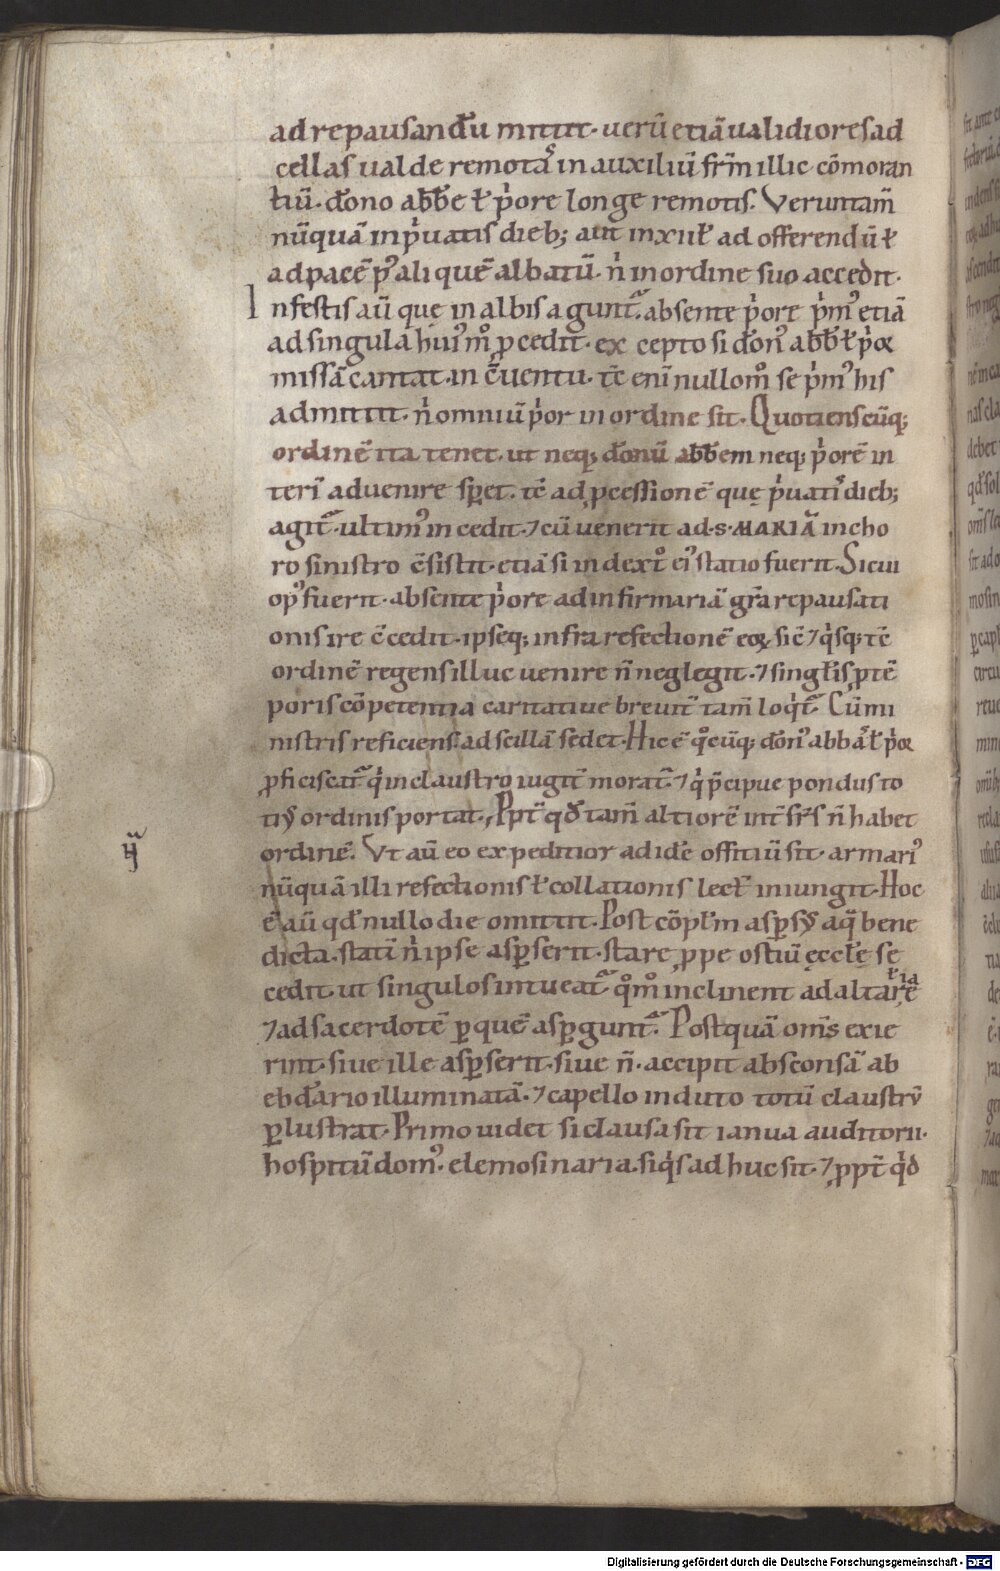 ad repausandū mittit· uerū etiā ualidiores ad
cellas ualde remotas in auxiliū fr̄m illic cōmoran
tiū· dōno abb̄e ł p̍ore longe remotis. Verumtam̄
nūquā in p̍uatis dieb; aut in xii ł ad offerendū ł
ad pacē p᷒ aliquē albatū· n̍ in ordine suo accedit·
In festis aū quę in albis agunt᷑ absente p̍ore p̍m᷒ etiā
ad singula hui᷒ m̊ ꝓcedit· excepto si dōn᷒ abb̄ ł p̍oꝛ
missā cantat in c̄uentu· tc̄ eni nullom̊ se p̍m᷒ his
admittit· n̍ omniū p̍or in ordine sit· Quotienscūq;
ordinē ita tenet· ut neq; dōnū abb̄em neq; p̍orē in
teri aduenire sꝑet· tc̄ ad ꝓcessionē quę p̍uatis dieb;
agit᷑ ultim᷒ incedit· ⁊ cū uenerit ad·s·MARIĀ in cho
ro sinistro c̄sistit· etiā si in dext̊ ei᷒ statio fuerit· Sicui
op᷒ fuerit· absente p̍ore ad infirmariā gr̄a repausati
onis ire c̄cedit· ipseq; infra refectionē eoꝝ sic̄ ⁊ q̍sq; tc̄
ordinē regens illuc uenire n̄ neglegit· ⁊ singłis ꝓ tē
poris cōpetentia caritatiue breuit̄ tam̄ loq̍t᷑ Cū mi
nistris reficiens ad scillā sedet· Hic ē q̊cūq; dōn᷒ abbas ł p̍oꝛ
ꝓficiscat᷑ q̍ in claustro iugit̄ morat᷑ ⁊ q̍ p̄cipue pondus to
ti᷒ ordinis portat· Ppt̄ qđ tam̄ altiorē int̄ fr̄s n̄ habet
ordinē. Vt aū eo expeditior ad idē offitiū sit· armari᷒
nūquā illi refectionis ł collationis lect̄ iniungit· Hoc
ē aū qđ nullo die omittit· Post cōpl̄m aspersi᷒ aq̄ bene
dicta· statī n̍ ipse asꝑserit· stare ꝓpe ostiū ęccłę se
cedit· ut singulos intueat᷑ q̊m̊ inclinent ad altare
łia
⁊ ad sacerdotē ꝑ quē asꝑgunt᷑ Postquā om̄s exie
rint· siue ille asꝑserit· siue n̄· accipit absconsā ab
ebđario illuminatā· ⁊ capello induto totū claustrū
ꝑlustrat· Primo uidet si clausa sit ianua auditorii·
hospitū dom᷒· elemosinaria· si q̍s adhuc sit· ⁊ ꝓpt̄ q̍d